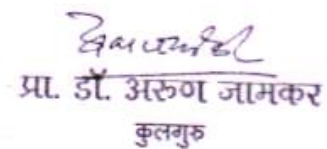 प्रा. डॉ. अरुण जामकर
कुलगुरु